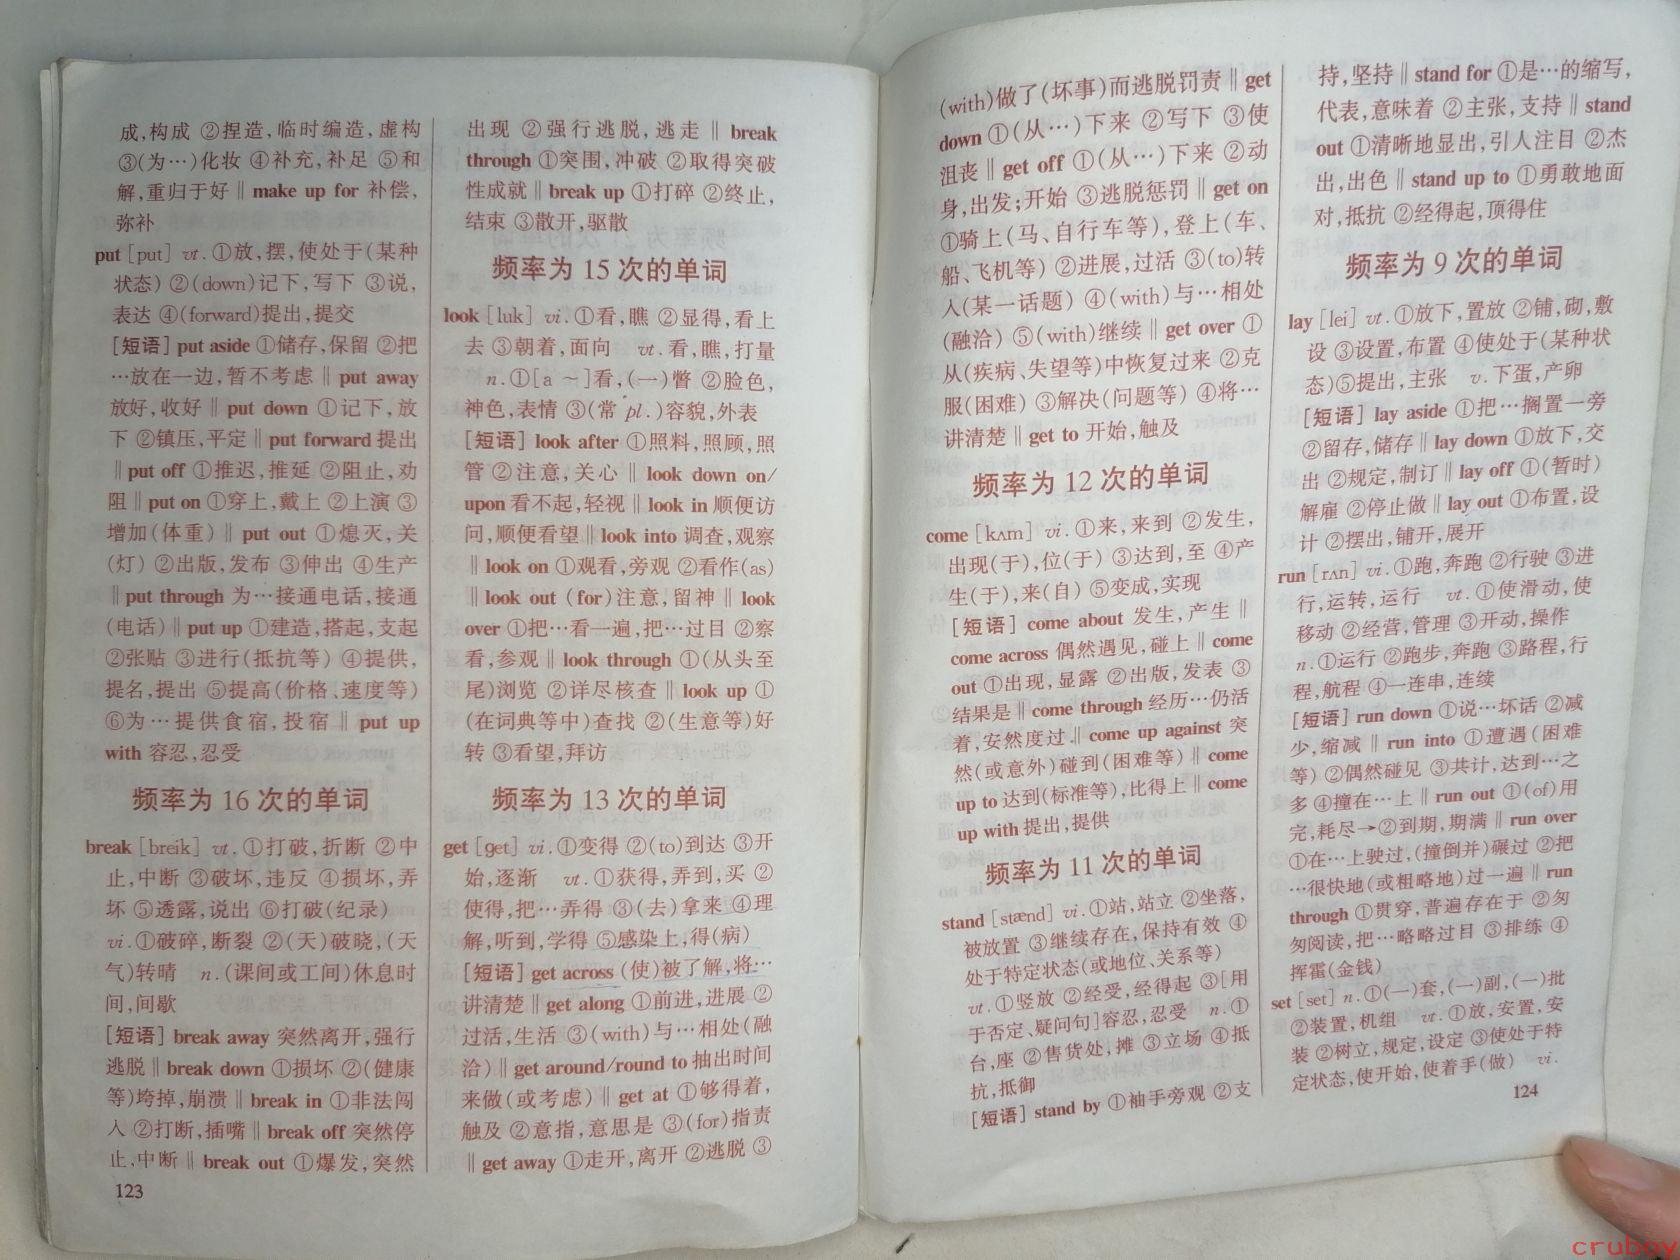 成,构成 ②捏造,临时编造,虚构
③(为…)化妆 ④补充,补足 ⑤和
解,重归于好‖make up for 补偿,
弥补
put [put] vt. ①放,摆,使处于(某种
状态) ②(down)记下,写下 ③说,
表达 ④(forward)提出,提交
[短语] put aside ①储存,保留 ②把
…放在一边,暂不考虑‖put away
放好,收好‖put down ①记下,放
下 ②镇压,平定‖put forward 提出
‖put off ①推迟,推延 ②阻止,劝
阻‖put on ①穿上,戴上 ②上演 ③
增加(体重)‖put out ①熄灭,关
(灯) ②出版,发布 ③伸出 ④生产
‖put through 为…接通电话,接通
(电话)‖put up ①建造,搭起,支起
②张贴 ③进行(抵抗等) ④提供,
提名,提出 ⑤提高(价格、速度等)
⑥为…提供食宿,投宿‖put up
with 容忍,忍受
频率为 16 次的单词
break [breik] vt. ①打破,折断 ②中
止,中断 ③破坏,违反 ④损坏,弄
坏 ⑤透露,说出 ⑥打破(纪录)
vi.①破碎,断裂 ②(天)破晓,(天
气)转晴 n.(课间或工间)休息时
间,间歇
[短语] break away 突然离开,强行
逃脱‖break down ①损坏 ②(健康
等)垮掉,崩溃‖break in ①非法闯
入 ②打断,插嘴‖break off 突然停
止,中断‖break out ①爆发,突然
123
出现 ②强行逃脱,逃走‖break
through ①突围,冲破 ②取得突破
性成就‖break up ①打碎 ②终止,
结束 ③散开,驱散
频率为 15 次的单词
look [luk] vi.①看,瞧 ②显得,看上
去 ③朝着,面向 vt.看,瞧,打量
n.①[a ~]看,(一)瞥 ②脸色,
神色,表情 ③(常 pl.)容貌,外表
[短语] look after ①照料,照顾,照
管 ②注意,关心‖look down on/
upon 看不起,轻视‖look in 顺便访
问,顺便看望‖look into 调查,观察
‖look on ①观看,旁观 ②看作(as)
‖look out (for)注意,留神‖look
over ①把…看一遍,把…过目 ②察
看,参观‖look through ①(从头至
尾)浏览 ②详尽核查‖look up ①
(在词典等中)查找 ②(生意等)好
转 ③看望,拜访
频率为 13 次的单词
get [get] vi.①变得 ②(to)到达 ③开
始,逐渐 vt.①获得,弄到,买 ②
使得,把…弄得 ③(去)拿来 ④理
解,听到,学得 ⑤感染上,得(病)
[短语] get across (使)被了解,将…
讲清楚‖get along ①前进,进展 ②
过活,生活 ③(with)与…相处(融
洽)‖get around/round to 抽出时间
来做(或考虑)‖get at ①够得着,
触及 ②意指,意思是 ③(for)指责
‖get away ①走开,离开 ②逃脱 ③
(with)做了(坏事)而逃脱罚责‖get
down ①(从…)下来 ②写下 ③使
沮丧‖get off ①(从…)下来 ②动
身,出发;开始 ③逃脱惩罚‖get on
①骑上(马、自行车等),登上(车、
船、飞机等) ②进展,过活 ③(to)转
入(某一话题) ④(with)与…相处
(融洽) ⑤(with)继续‖get over ①
从(疾病、失望等)中恢复过来 ②克
服(困难) ③解决(问题等) ④将…
讲清楚‖get to 开始,触及
频率为 12 次的单词
come [kʌm] vi.①来,来到 ②发生,
出现(于),位(于) ③达到,至 ④产
生(于),来(自) ⑤变成,实现
[短语] come about 发生,产生‖
come across 偶然遇见,碰上‖come
out ①出现,显露 ②出版,发表 ③
结果是‖come through 经历…仍活
着,安然度过‖come up against 突
然(或意外)碰到(困难等)‖come
up to 达到(标准等),比得上‖come
up with 提出,提供
频率为 11 次的单词
stand [stænd] vi.①站,站立 ②坐落,
被放置 ③继续存在,保持有效 ④
处于特定状态(或地位、关系等)
vt.①竖放 ②经受,经得起 ③[用
于否定、疑问句]容忍,忍受 n.①
台,座 ②售货处,摊 ③立场 ④抵
抗,抵御
[短语] stand by ①袖手旁观 ②支
持,坚持‖stand for ①是…的缩写,
代表,意味着 ②主张,支持‖stand
out ①清晰地显出,引人注目 ②杰
出,出色‖stand up to ①勇敢地面
对,抵抗 ②经得起,顶得住
频率为 9 次的单词
lay [lei] vt.①放下,置放 ②铺,砌,敷
设 ③设置,布置 ④使处于(某种状
态)⑤提出,主张 v.下蛋,产卵
[短语] lay aside ①把…搁置一旁
②留存,储存‖lay down ①放下,交
出 ②规定,制订‖lay off ①(暂时)
解雇 ②停止做‖lay out ①布置,设
计 ②摆出,铺开,展开
run [rʌn] vi.①跑,奔跑 ②行驶 ③进
行,运转,运行 vt.①使滑动,使
移动 ②经营,管理 ③开动,操作
n.①运行 ②跑步,奔跑 ③路程,行
程,航程 ④一连串,连续
[短语] run down ①说…坏话 ②减
少,缩减‖run into ①遭遇(困难
等) ②偶然碰见 ③共计,达到…之
多 ④撞在…上‖run out ①(of)用
完,耗尽→②到期,期满‖run over
①在…上驶过,(撞倒并)碾过 ②把
…很快地(或粗略地)过一遍‖run
through ①贯穿,普遍存在于 ②匆
匆阅读,把…略略过目 ③排练 ④
挥霍(金钱)
set [set] n.①(一)套,(一)副,(一)批
②装置,机组 vt.①放,安置,安
装 ②树立,规定,设定 ③使处于特
定状态,使开始,使着手(做) vi.
124
cruboy